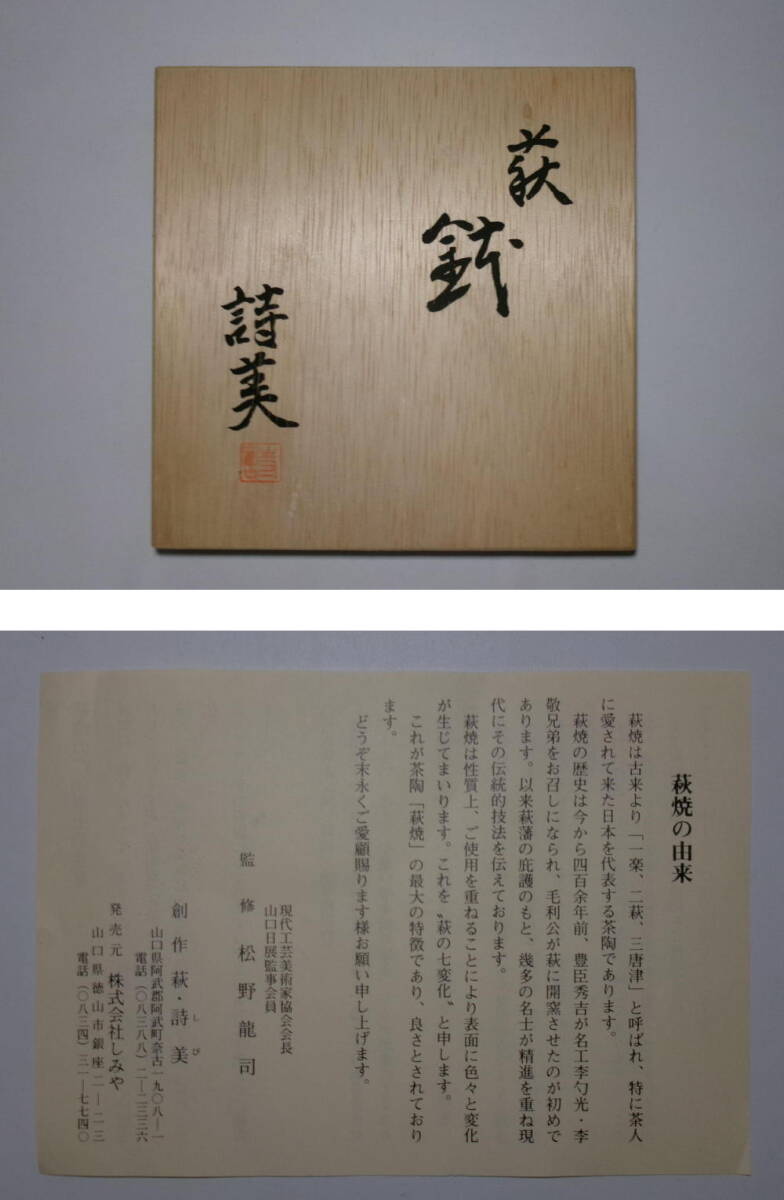 萩
鉢
詩美
萩焼の由来
萩焼は古来より「一楽、二萩、三唐津」と呼ばれ、特に茶人
に愛されて来た日本を代表する茶陶であります。
萩焼の歴史は今から四百余年前、豊臣秀吉が名工李勺光・李
敬兄弟をお召しになられ、毛利公が萩に開窯させたのが初めで
あります。以来萩藩の庇護のもと、幾多の名士が精進を重ね現
代にその伝統的技法を伝えております。
萩焼は性質上、ご使用を重ねることにより表面に色々と変化
が生じてまいります。これを〝萩の七変化〟と申します。
これが茶陶「萩焼」の最大の特徴であり、良さとされており
ます。
どうぞ末永くご愛顧賜ります様お願い申し上げます。
現代工芸美術家協会会長
山口日展監事会員
監修 松野龍司
創作萩・詩美
しび
山口県阿武郡阿武町奈古一九〇八―一
電話(〇八三八八)二―二三三六
発売元 株式会社しみや
山口県徳山市銀座二―二三
電話(〇八三四)三一―七七四〇